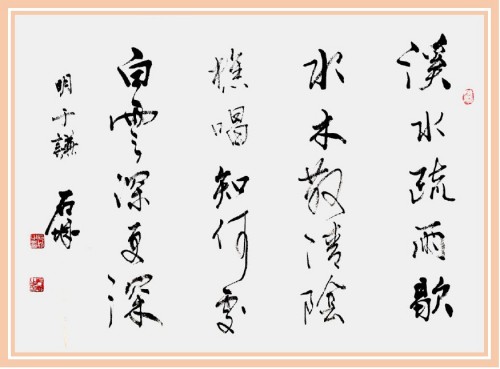 溪水疏雨歇
水木散清陰
樵唱知何處
白雲深更深
明于謙